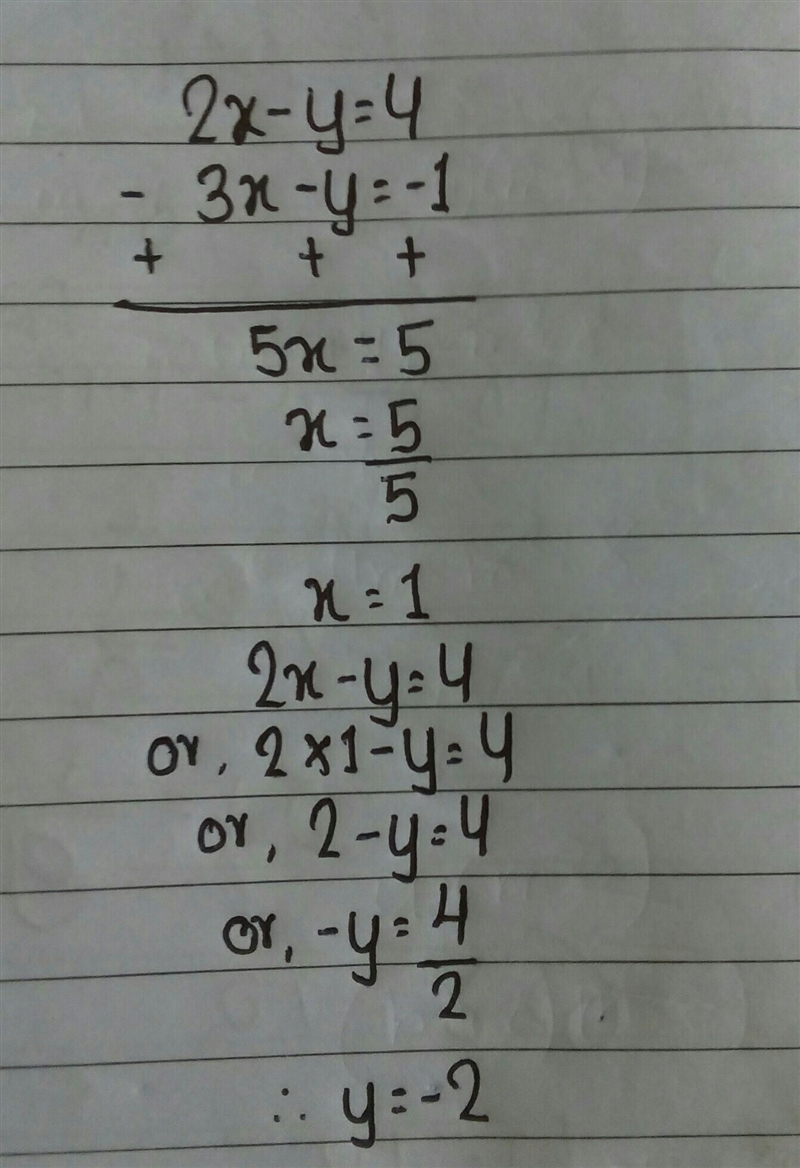 2x-y=4
- 3x-y=-1
+ + +
5x=5
x=5
5
x=1
2x-y=4
or, 2×1-y=4
or, 2-y=4
or, -y=4
2
∴ y=-2